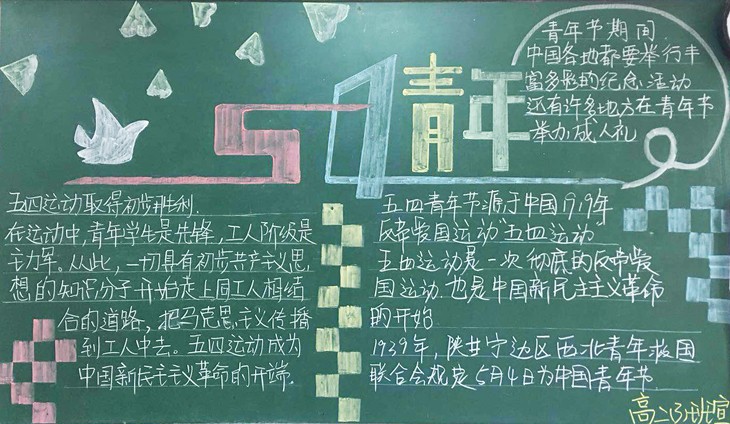 54青年
青年节期间
中国各地都要举行丰
富多彩的纪念活动
还有许多地方在青年节
举办成人礼
五四运动取得初步胜利.
在运动中,青年学生是先锋,工人阶级是
主力军。从此,一切具有初步共产主义思
想的知识分子开始走上同工人相结
合的道路,把马克思主义传播
到工人中去。五四运动成为
中国新民主主义革命的开端.
五四青年节源于中国1919年
反帝爱国运动"五四运动"
五四运动是一次彻底的反帝爱
国运动.也是中国新民主主义革命
的开始
1939年,陕甘宁边区西北青年救国
联合会规定5月4日为中国青年节